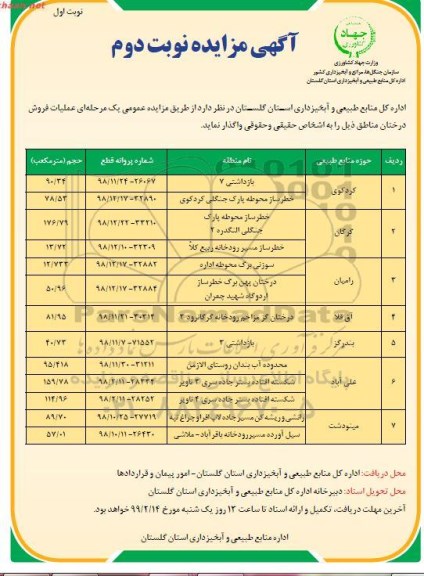 نوبت اول
جهاد
کشاورزی
وزارت جهاد کشاورزی
سازمان جنگلها، مراتع و آبخیزداری کشور
اداره کل منابع طبیعی و آبخیزداری استان گلستان
آگهی مزایده نوبت دوم
اداره کل منابع طبیعی و آبخیزداری استان گلستان در نظر دارد از طریق مزایده عمومی یک مرحله‌ای عملیات فروش
درختان مناطق ذیل را به اشخاص حقیقی وحقوقی واگذار نماید.
ردیف حوزه منابع طبیعی نام منطقه شماره پروانه قطع حجم (مترمکعب)
۱ کردکوی بازداشتی ۷ ۲۶۰۶۷-۹۸/۱۱/۲۴ ۹۰/۳۴
خطرساز محوطه پارک جنگلی کردکوی ۳۲۸۹۰-۹۸/۱۲/۱۷ ۷۸/۵۳
۲ گرگان خطرساز محوطه پارک جنگلی النگدره ۲ ۳۳۲۱۰-۹۸/۱۲/۲۲ ۱۷۶/۷۹
خطرساز مسیر رودخانه ربیع کلا ۳۲۳۰۹-۹۸/۱۲/۱۰ ۱۳/۷۲
۳ رامیان سوزنی برگ محوطه اداره ۳۲۸۸۲-۹۸/۱۲/۱۷ ۱۲/۷۳۲
درختان پهن برگ خطرساز اردوگاه شهید چمران ۳۲۸۸۴-۹۸/۱۲/۱۷ ۵۰/۹۶
۴ آق قلا درختان گز مزاحم رودخانه گرگانرود ۲ ۳۰۳۱۲-۹۸/۱۱/۲۱ ۸۱/۹۵
۵ بندرگز بازداشتی ۳ ۷۱۵۵۲-۹۸/۱۱/۷ ۴۰/۷۳
۶ علی آباد محدوده آب بندان روستای الازمن ۳۱۲۱۱-۹۸/۱۱/۳۰ ۹۵/۴۱۸
شکسته افتاده بستر جاده سری ۳ ناویر ۲۸۴۳۴-۹۸/۲/۱۱ ۱۵۹/۷۸
شکسته افتاده بستر جاده سری ۴ ناویر ۲۸۲۵۲-۹۸/۲/۱۱ ۱۱۴/۹۶
۷ مینودشت رانشی و ریشه کن مسیر جاده لاب افرا و چراغ تپه ۲۷۷۱۹-۹۸/۱۰/۲۵ ۸۹/۷۰
سیل آورده مسیر رودخانه باقرآباد-ملاشی ۲۶۴۳۰-۹۸/۱۰/۱۱ ۵۷/۰۱
محل دریافت: اداره کل منابع طبیعی و آبخیزداری استان گلستان- امور پیمان و قراردادها
محل تحویل اسناد: دبیرخانه اداره کل منابع طبیعی و آبخیزداری استان گلستان
آخرین مهلت دریافت، تکمیل و ارائه اسناد تا ساعت ۱۳ روز یک شنبه مورخ ۹۹/۲/۱۴ خواهد بود.
اداره منابع طبیعی و آبخیزداری استان گلستان